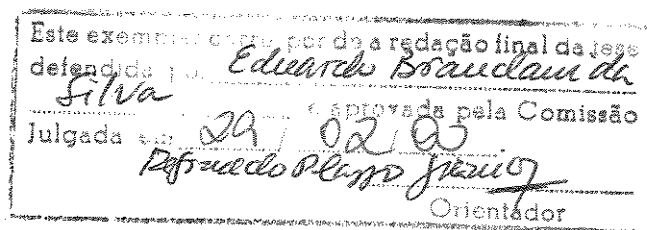 Este exemplar corresponde a redação final da tese
defendida por Eduardo Brandani da
Silva e aprovada pela Comissão
Julgada em 29 / 02 / 00.
Orientador